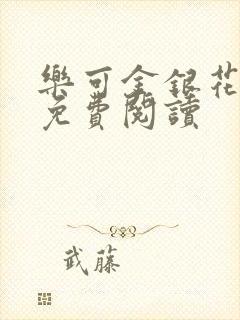 樂可金銀花
免費閱讀
武藤